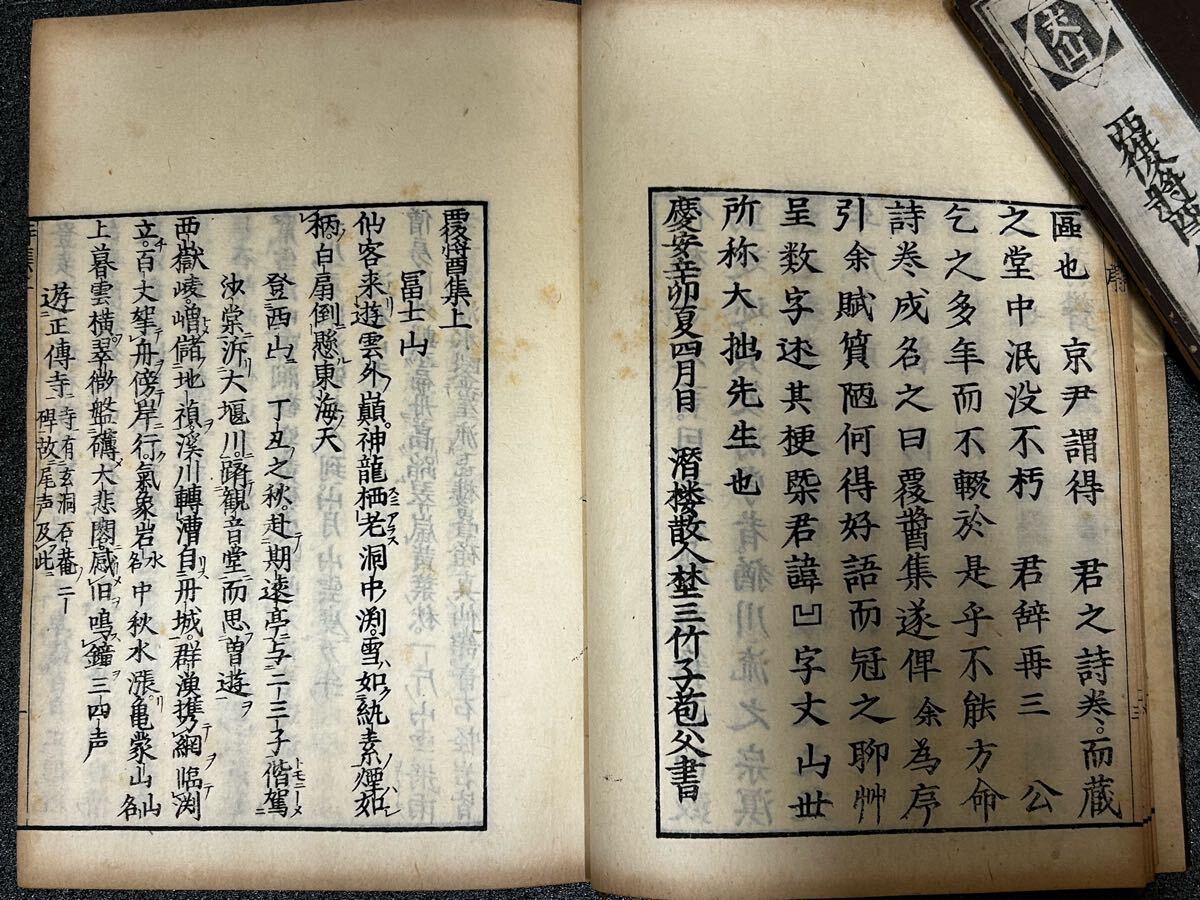 區也 京尹謂得 君之詩卷而藏
之堂中泯没不朽 君辞再三 公
乞之多年而不輟於是乎不能方命
詩卷成名之曰覆醬集遂俾余為序
引余賦質陋何得好語而冠之聊艸
呈数字述其梗槩君諱凹字丈山世
所称大拙先生也
慶安辛卯夏四月日 潛楼散人埜三竹子苞父書
覆醬集上
冨士山
仙客来遊雲外巔。神龍栖老洞中渕。雪如紈素煙如
柄。白扇倒懸東海天
登西山 丁丑之秋。赴期遠亭与二三子偕駕
沙棠泝大堰川。躋観音堂而思曽遊
西嶽崚嶒儲地禎。溪川轉漕自丹城。群漁携網臨渕
立。百丈挐舟傍岸行。氣象岩水名中秋水漲。亀蒙山山名
上暮雲橫翠微盤礴大悲閣。感旧鳴鐘三四声
遊正傳寺 寺有玄洞石菴二
碑故尾声及此
序
覆醬